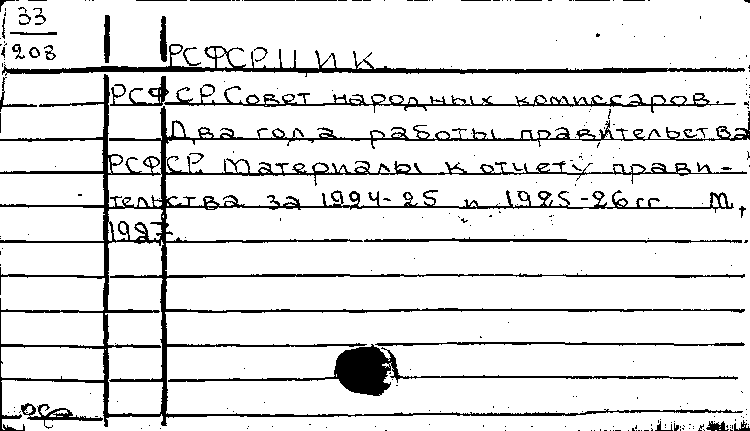 33
208
РСФСР. Ц И К.
РСФСР. Совет народных комиссаров.
Два года работы правительства
РСФСР. Материалы к отчету прави-
тельства за 1924-25 и 1925-26 гг. М.,
1927.